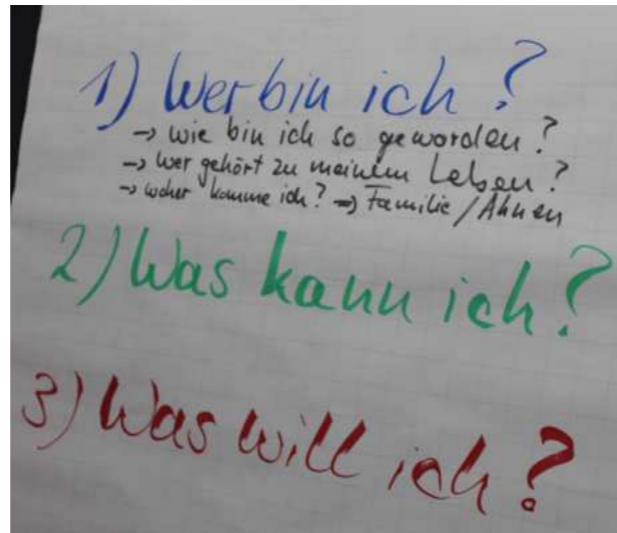 1) Wer bin ich?
→ wie bin ich so geworden?
→ wer gehört zu meinem Leben?
→ woher komme ich? → Familie/Ahnen
2) Was kann ich?
3) Was will ich?